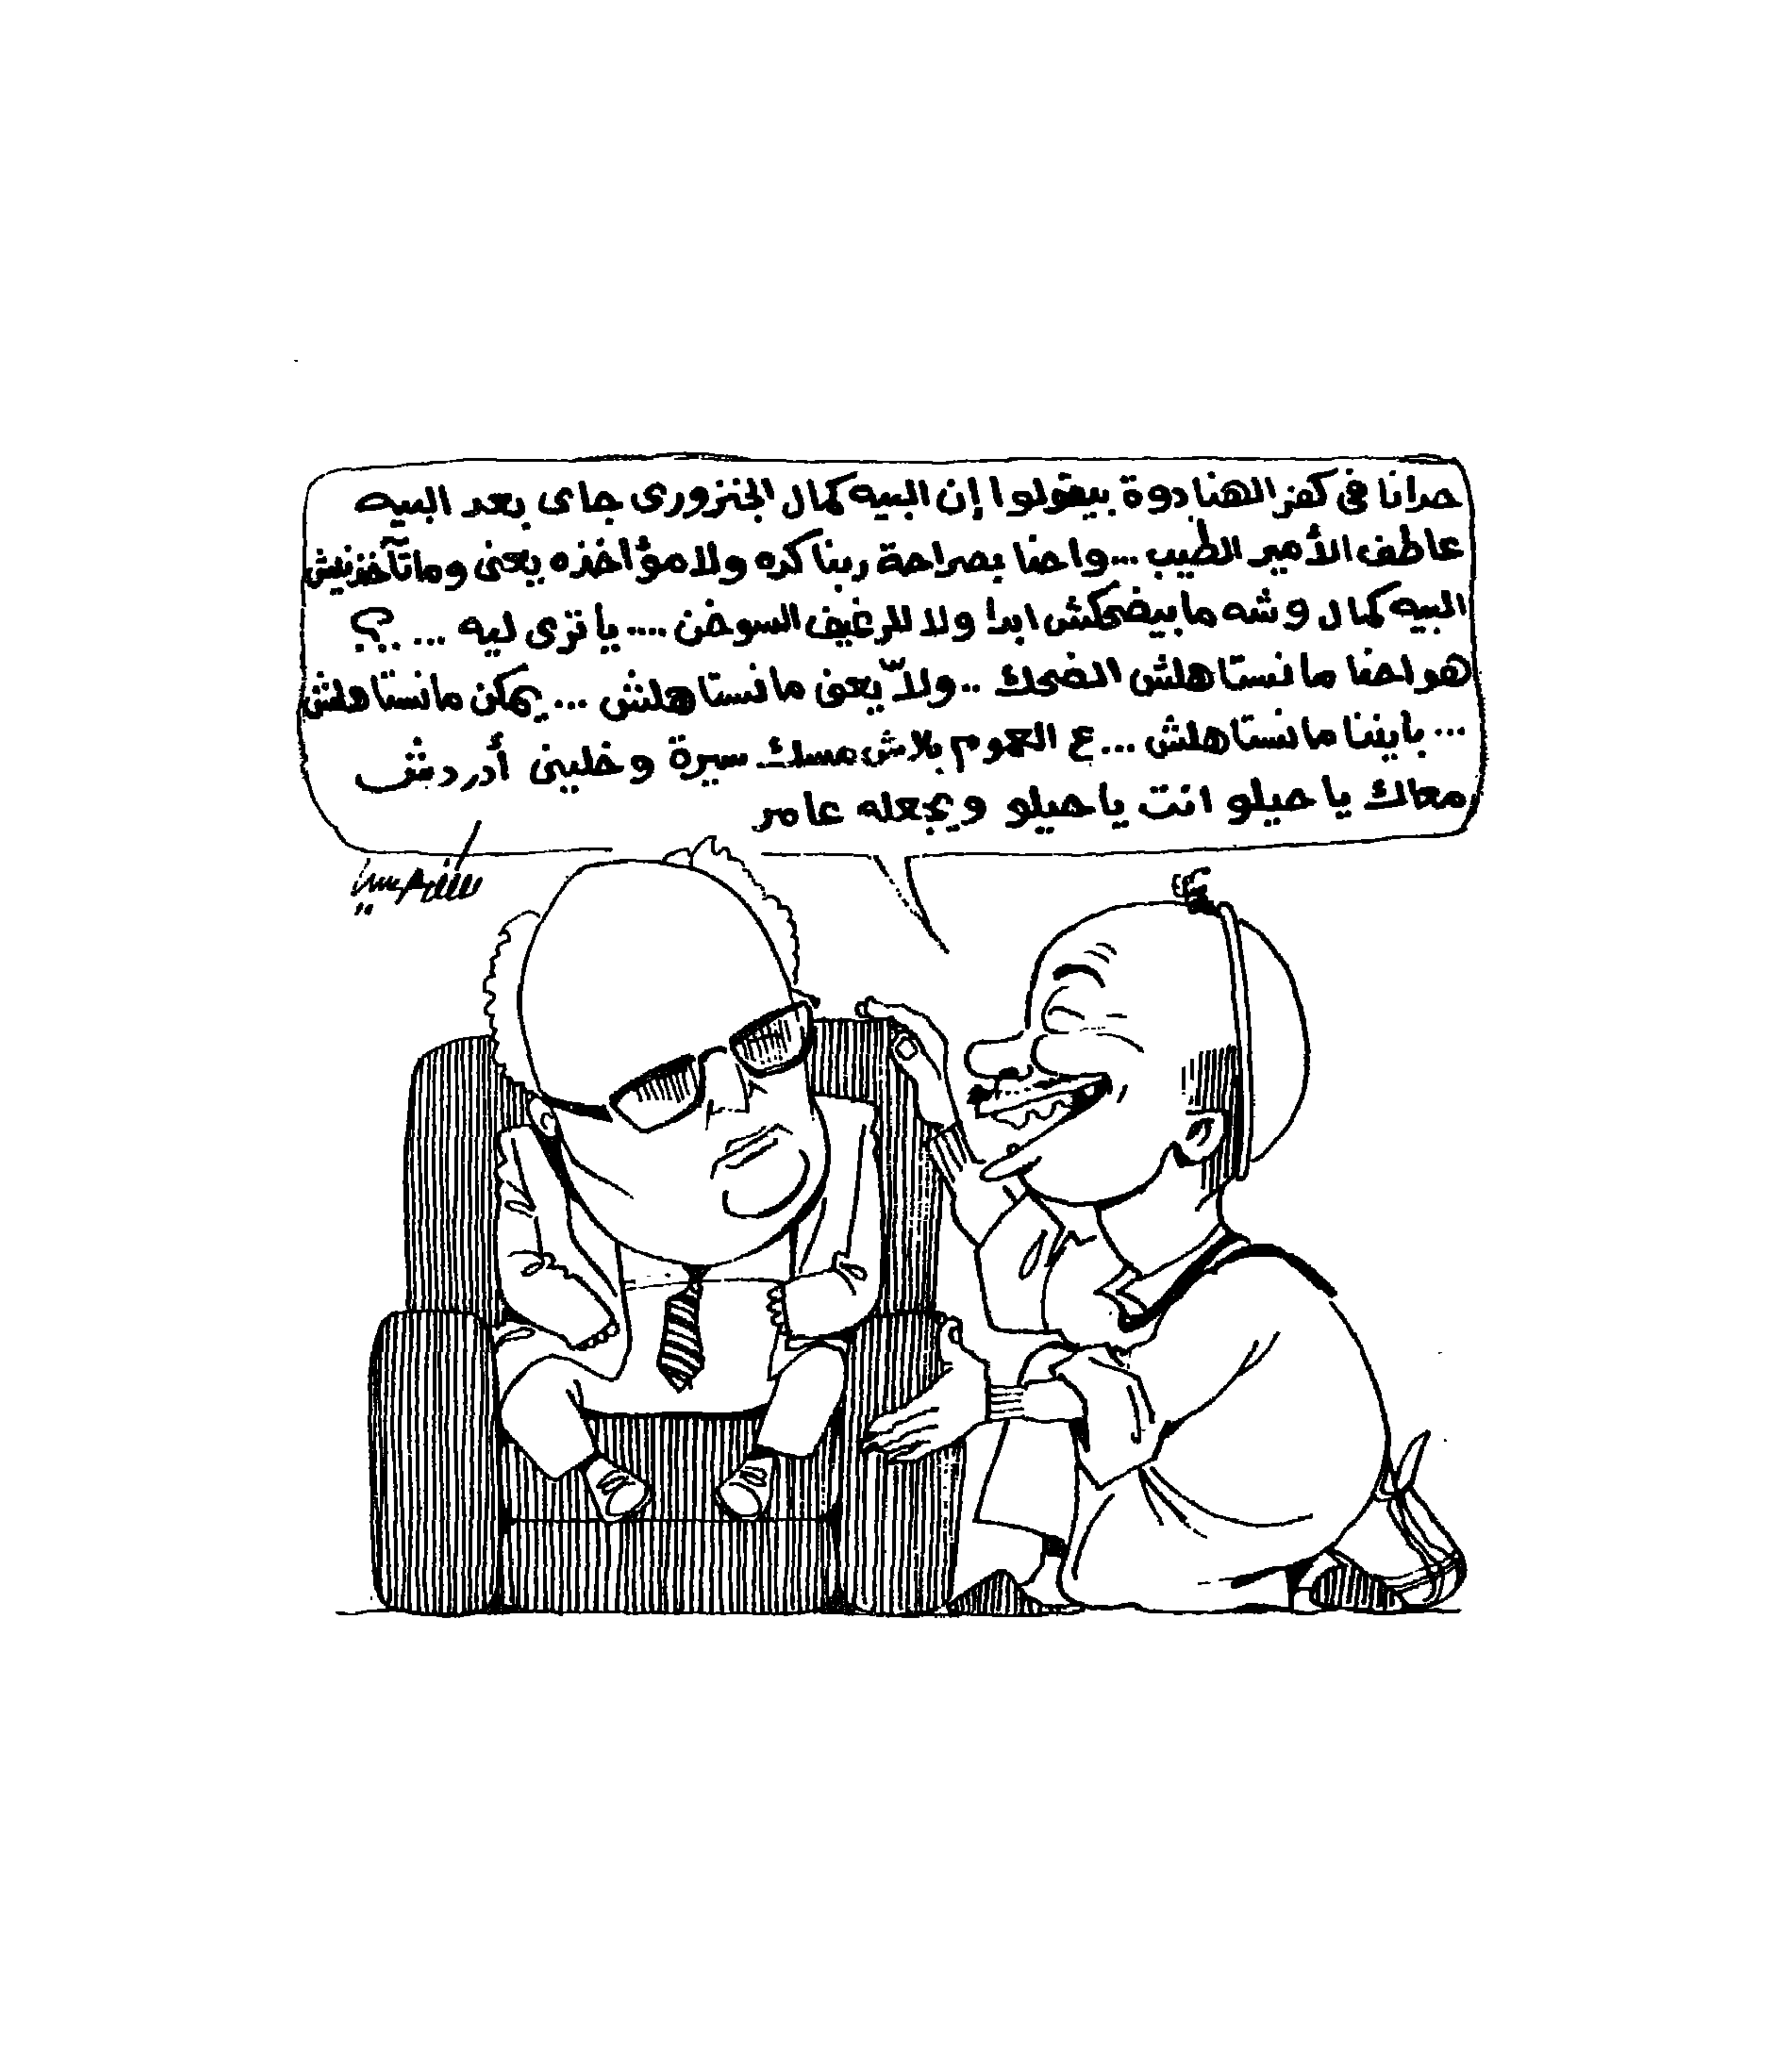 حدانا فى كفر الهنادوة بيقولوا إن البيه كمال الجنزورى جاى بعد البيه
عاطف الأمير الطيب ... واحنا بصراحة ربنا كده ولا مؤاخذه يعنى وماتآخذنيش
البيه كمال وشه مابيضحكش ابدا ولا للرغيف السوخن .... يا ترى ليه ... ؟
هو احنا مانستاهلش الضحك .. ولاّ يعنى مانستاهلش ... يمكن مانستاهلش
... باينا مانستاهلش ... ع العموم بلاش مسك سيرة وخلينى أدردش
معاك يا حيلو انت يا حيلو ويجعله عامر